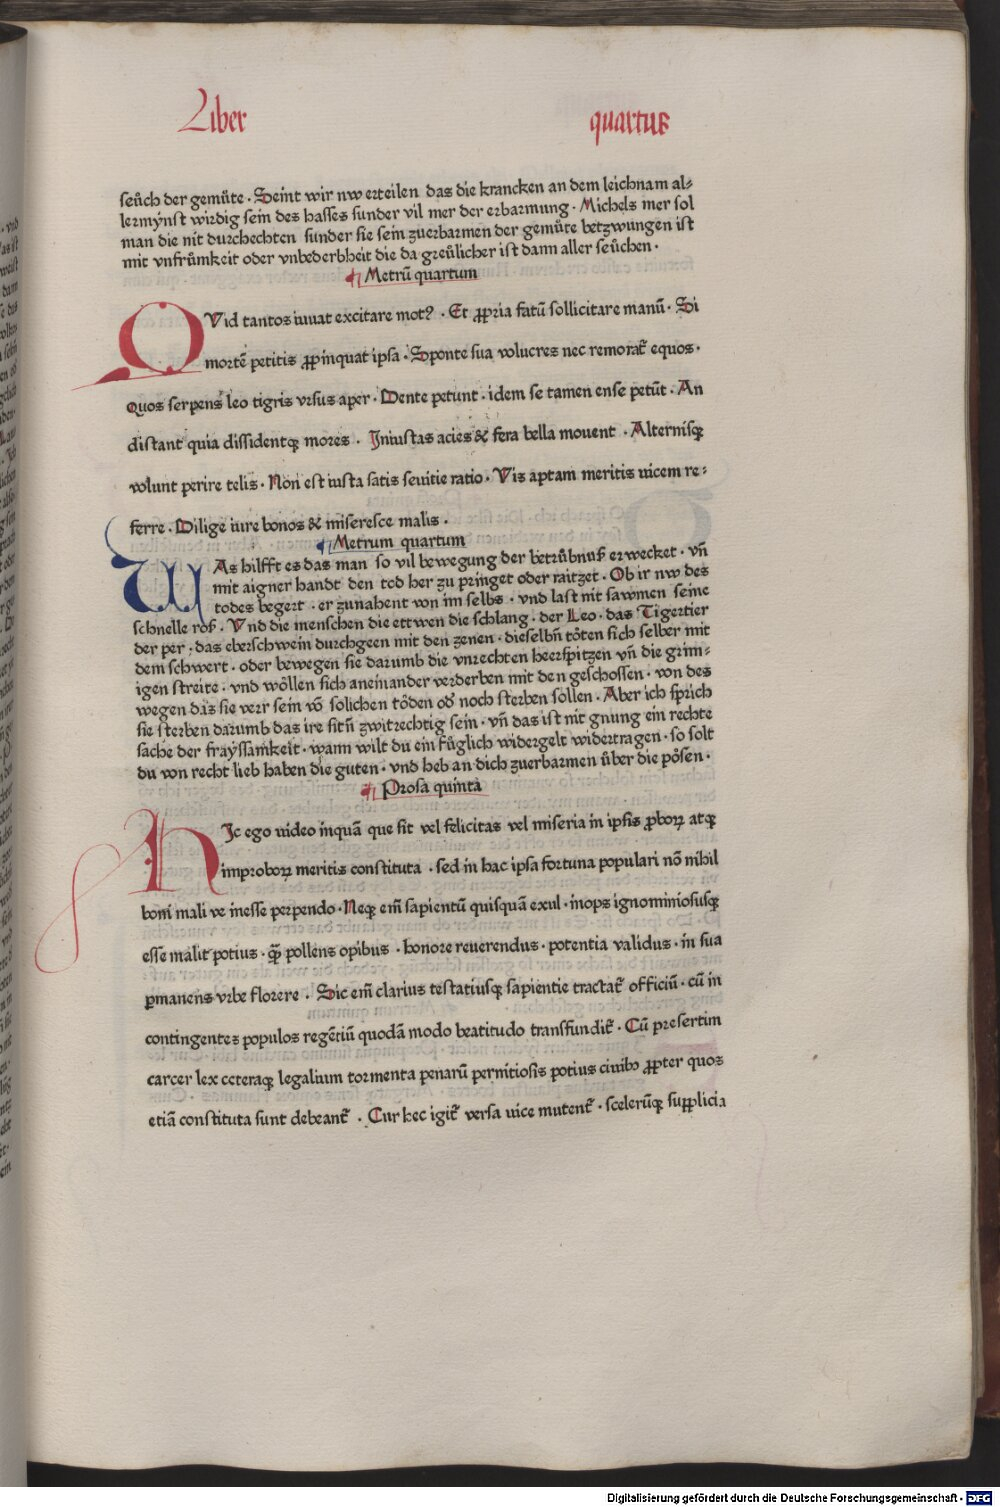 Liber quartus
seu̇ch der gemu̇te · Seint wir nw erteilen das die krancken an dem leichnam al⸗
lermynst wirdig sein des hasses sunder vil mer der erbarmung · Michels mer sol
man die nit durchechten sunder sie sein zuerbarmen der gemu̇te betzwungen ist
mit vnfru̇mkeit oder vnbederbheit die da greu̇licher ist dann aller seu̇chen ·
¶ Metrū quartum
QVid tantos iuuat excitare motꝰ · Et ꝓpria fatū sollicitare manū · Si
mortē petitis ꝓpinquat ipsa · Sponte sua volucres nec remorat᷑ equos ·
Quos serpens leo tigris vrsus aper · Dente petunt · idem se tamen ense petūt · An
distant quia dissidentqꝫ mores · Iniustas acies & fera bella mouent · Alternisqꝫ
volunt perire telis · Non est iusta satis seuitie ratio · Vis aptam meritis uicem re⸗
ferre · Dilige iure bonos & miseresce malis ·
¶ Metrum quartum
WAs hilfft es das man so vil bewegung der betru̇bnuß erwecket · vn̄
mit aigner handt den tod her zu pringet oder raitzet · Ob ir nw des
todes begert · er zunahent von im selbs · vnd last nit sawmen seine
schnelle roß · Vnd die menschen die ettwen die schlang · der Leo · das Tigertier
der per · das eberschwein durchgeen mit den zenen · dieselbn̄ tȯten sich selber mit
dem schwert · oder bewegen sie darumb die vnrechten heerspitzen vn̄ die grim⸗
igen streite · vnd wȯllen sich aneinander verderben mit den geschossen · von des
wegen das sie verr sein vō solichen tȯden od᷑ noch sterben sollen · Aber ich sprich
sie sterben darumb das ire sitn̄ zwitrechtig sein · vn̄ das ist nit gnung ein rechte
sache der frayssamkeit · wann wilt du ein fu̇glich widergelt widertragen · so solt
du von recht lieb haben die guten · vnd heb an dich zuerbarmen u̇ber die pȯsen ·
¶ Prosa quinta
HIc ego uideo inquā que sit vel felicitas vel miseria in ipsis ꝓboꝝ atqꝫ
improboꝝ meritis constituta · sed in hac ipsa fortuna populari nō nihil
boni mali ve inesse perpendo · Neqꝫ em̄ sapientū quisquā exul · inops ignominiosusqꝫ
esse malit potius · qꝫ̄ pollens opibus · honore reuerendus · potentia validus · in sua
ꝑmanens vrbe florere · Sic em̄ clarius testatiusqꝫ sapientie tractat᷑ officiū · cū in
contingentes populos regētiū quodā modo beatitudo transfundit᷑ · Cū presertim
carcer lex ceteraqꝫ legalium tormenta penarū pernitiosis potius ciuibꝰ ꝓpter quos
etiā constituta sunt debeant᷑ · Cur hec igit᷑ versa uice mutent᷑ · scelerūqꝫ supplicia
Digitalisierung gefördert durch die Deutsche Forschungsgemeinschaft · DFG